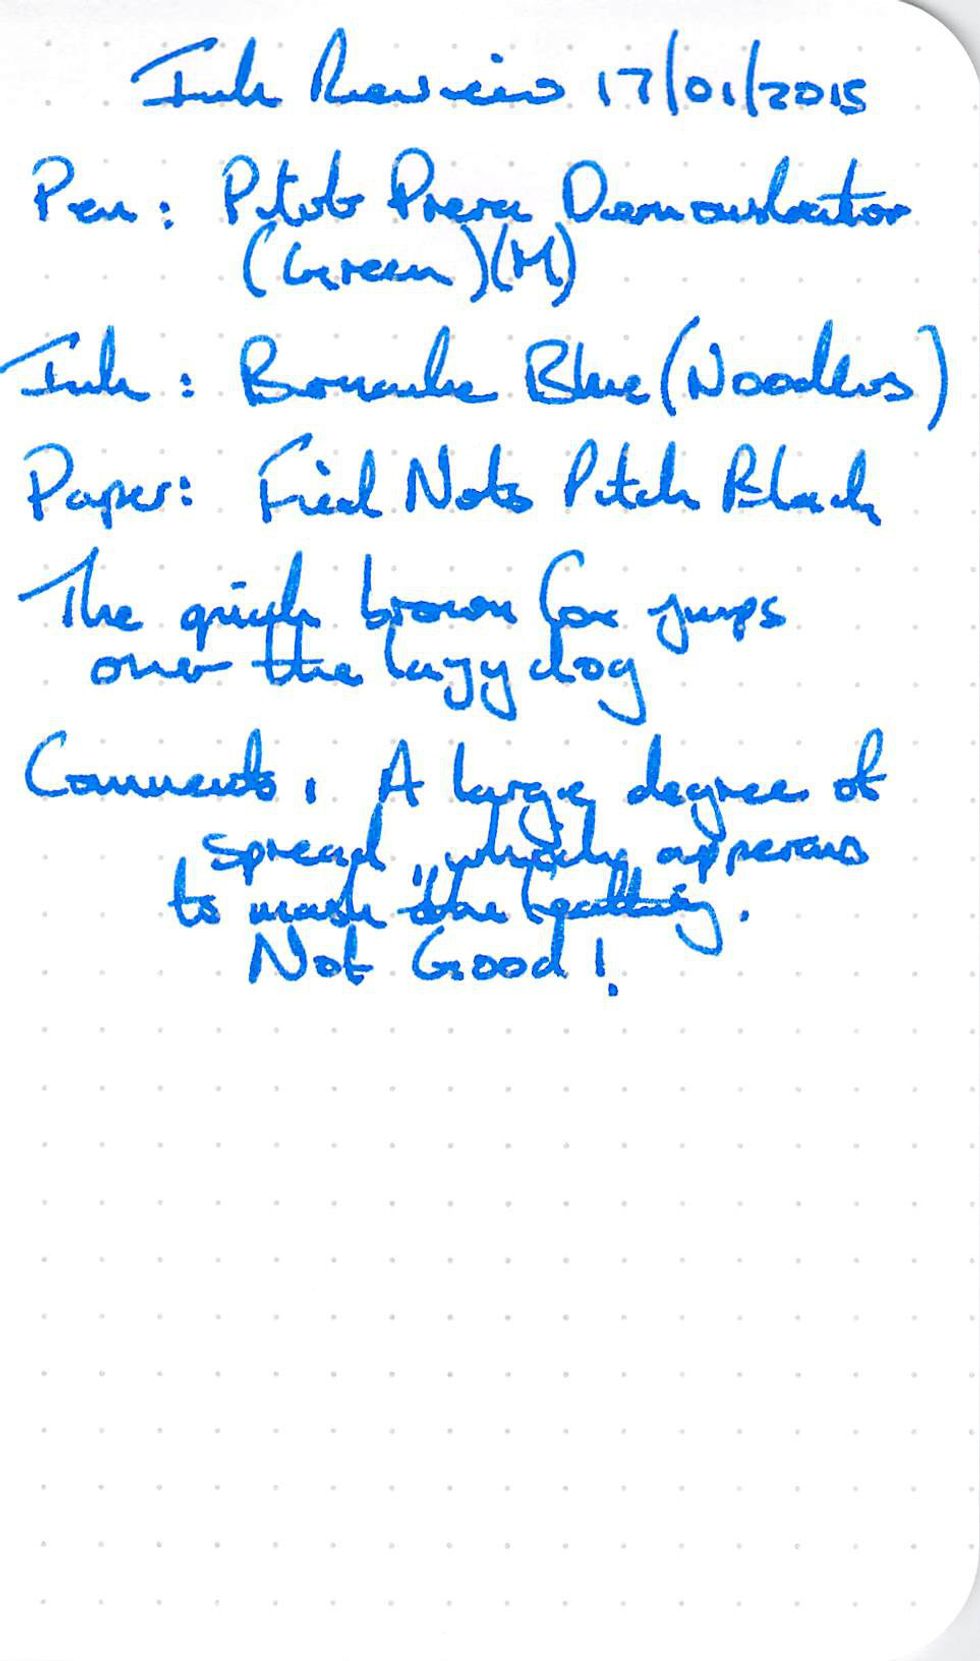 Ink Review 17/01/2015
Pen: Pilot Prera Demonstrator
(Green)(M)
Ink: Blue (Noodlers)
Paper: Field Notes Pitch Black
The quick brown fox jumps
over the lazy dog
Comments: A large degree of
spread, which appears
to mask the feathering.
Not Good!